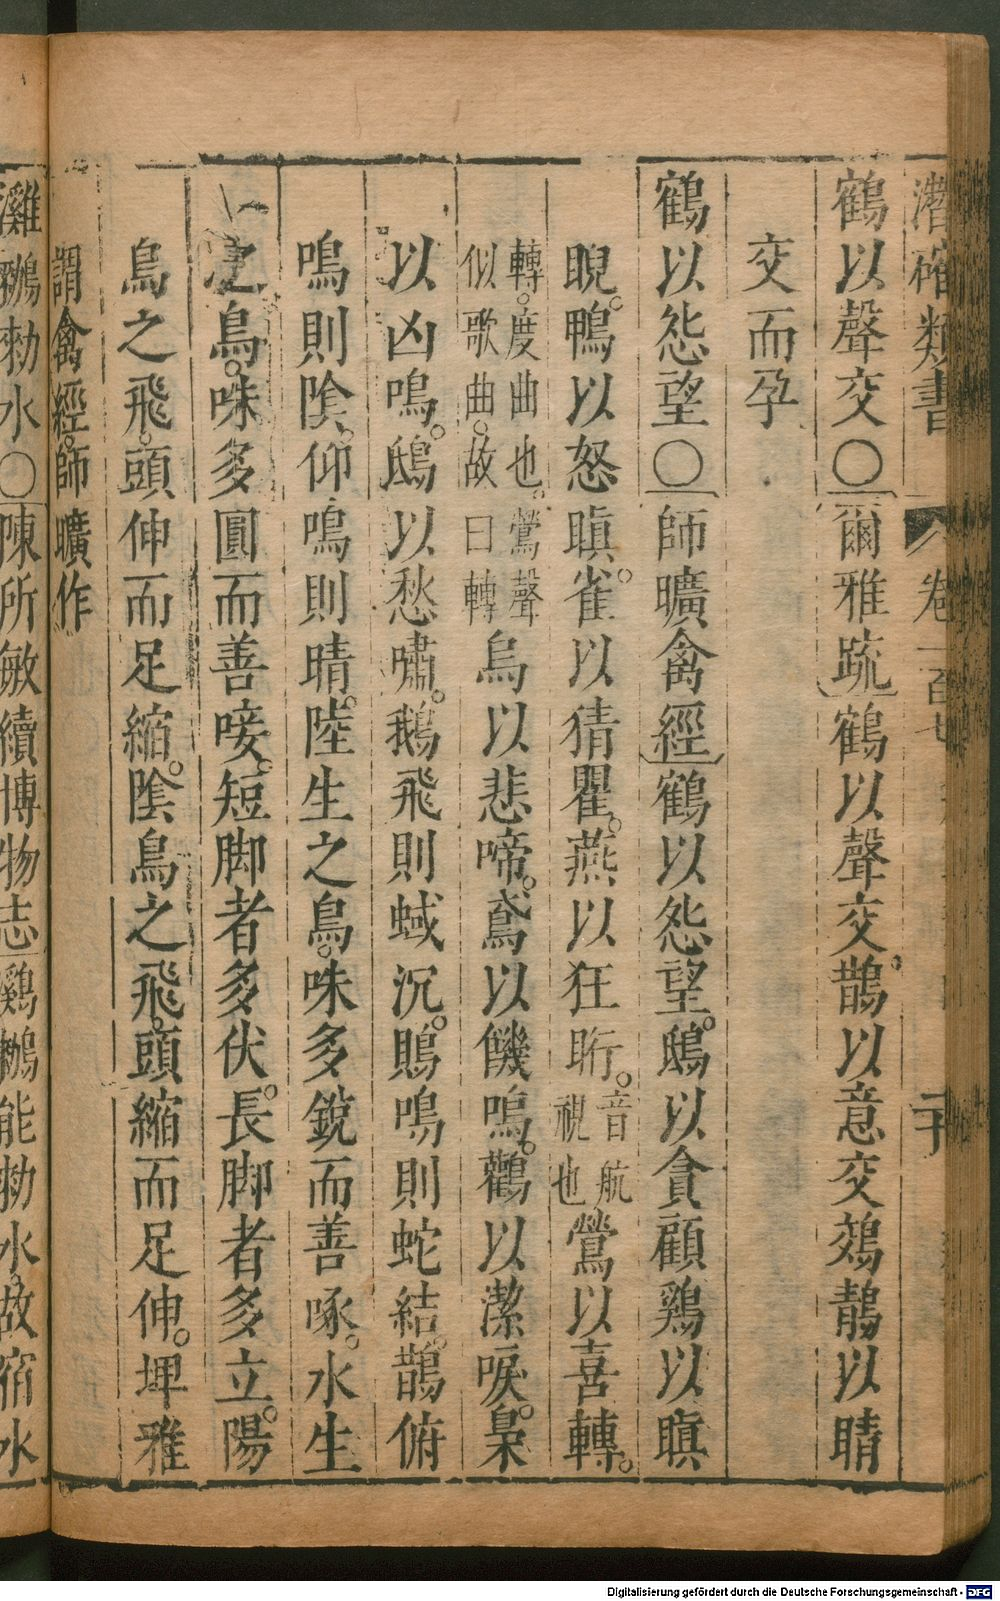 潛確類書 卷一百七 二十
鶴以聲交〇爾雅疏鶴以聲交。鵲以意交鵁鶄以睛
交而孕
鶴以怨望〇師曠禽經鶴以怨望。鴟以貪顧鷄以瞋
睨。鴨以怒瞋。雀以猜瞿。燕以狂䀪。音航視也鶯以喜轉。
轉。度曲也。鶯聲似歌曲。故曰轉烏以悲啼。鳶以饑鳴。鸛以潔唳。梟
以凶鳴。鴟以愁嘯。鵝飛則蜮沉。鵙鳴則蛇結。鵲俯
鳴則陰。仰鳴則晴。陸生之鳥。咮多銳而善啄。水生
之鳥。咮多圓而善唼。短脚者多伏。長脚者多立。陽
鳥之飛。頭伸而足縮。陰鳥之飛。頭縮而足伸。埤雅
謂禽經。師曠作
鸂鶒勑水〇陳所敏續博物志鸂鶒能勑水。故宿水
Digitalisierung gefördert durch die Deutsche Forschungsgemeinschaft - DFG